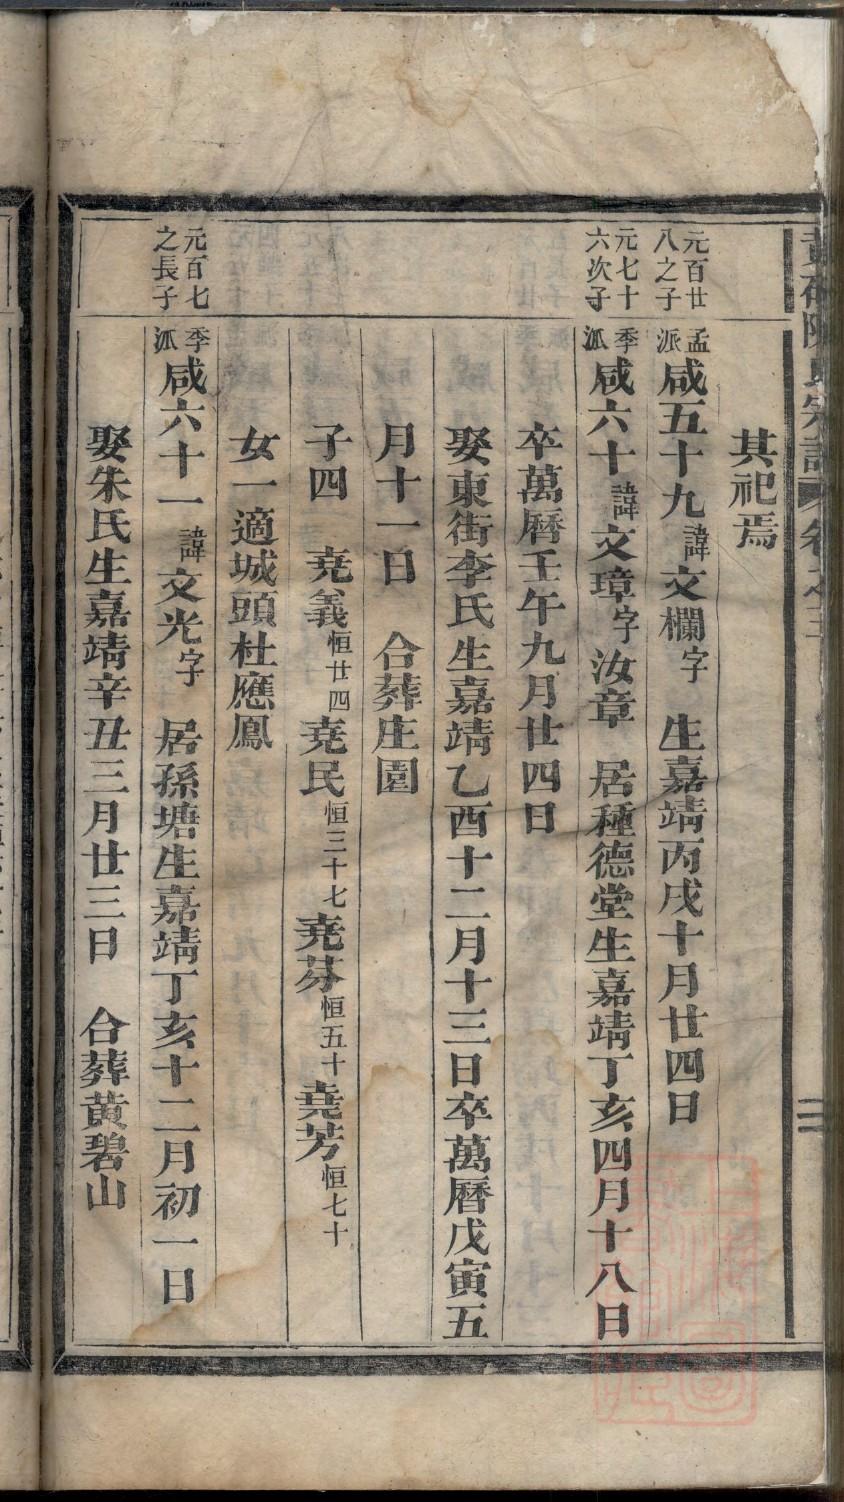 陳氏宗譜 卷之三
二
其祀焉
元百廿八之子
孟派咸五十九諱文欄字 生嘉靖丙戌十月廿四日
元七十六次子
季派咸六十諱文璋字汝章 居種德堂生嘉靖丁亥四月十八日
卒萬曆壬午九月廿四日
娶東街李氏生嘉靖乙酉十二月十三日卒萬曆戊寅五
月十一日 合葬庄園
子四 堯義恒廿四堯民恒三十七堯芬恒五十堯芳恒七十
女一適城頭杜應鳳
元百七之長子
季派咸六十一諱文光字 居孫塘生嘉靖丁亥十二月初一日
娶朱氏生嘉靖辛丑三月廿三日 合葬黄碧山